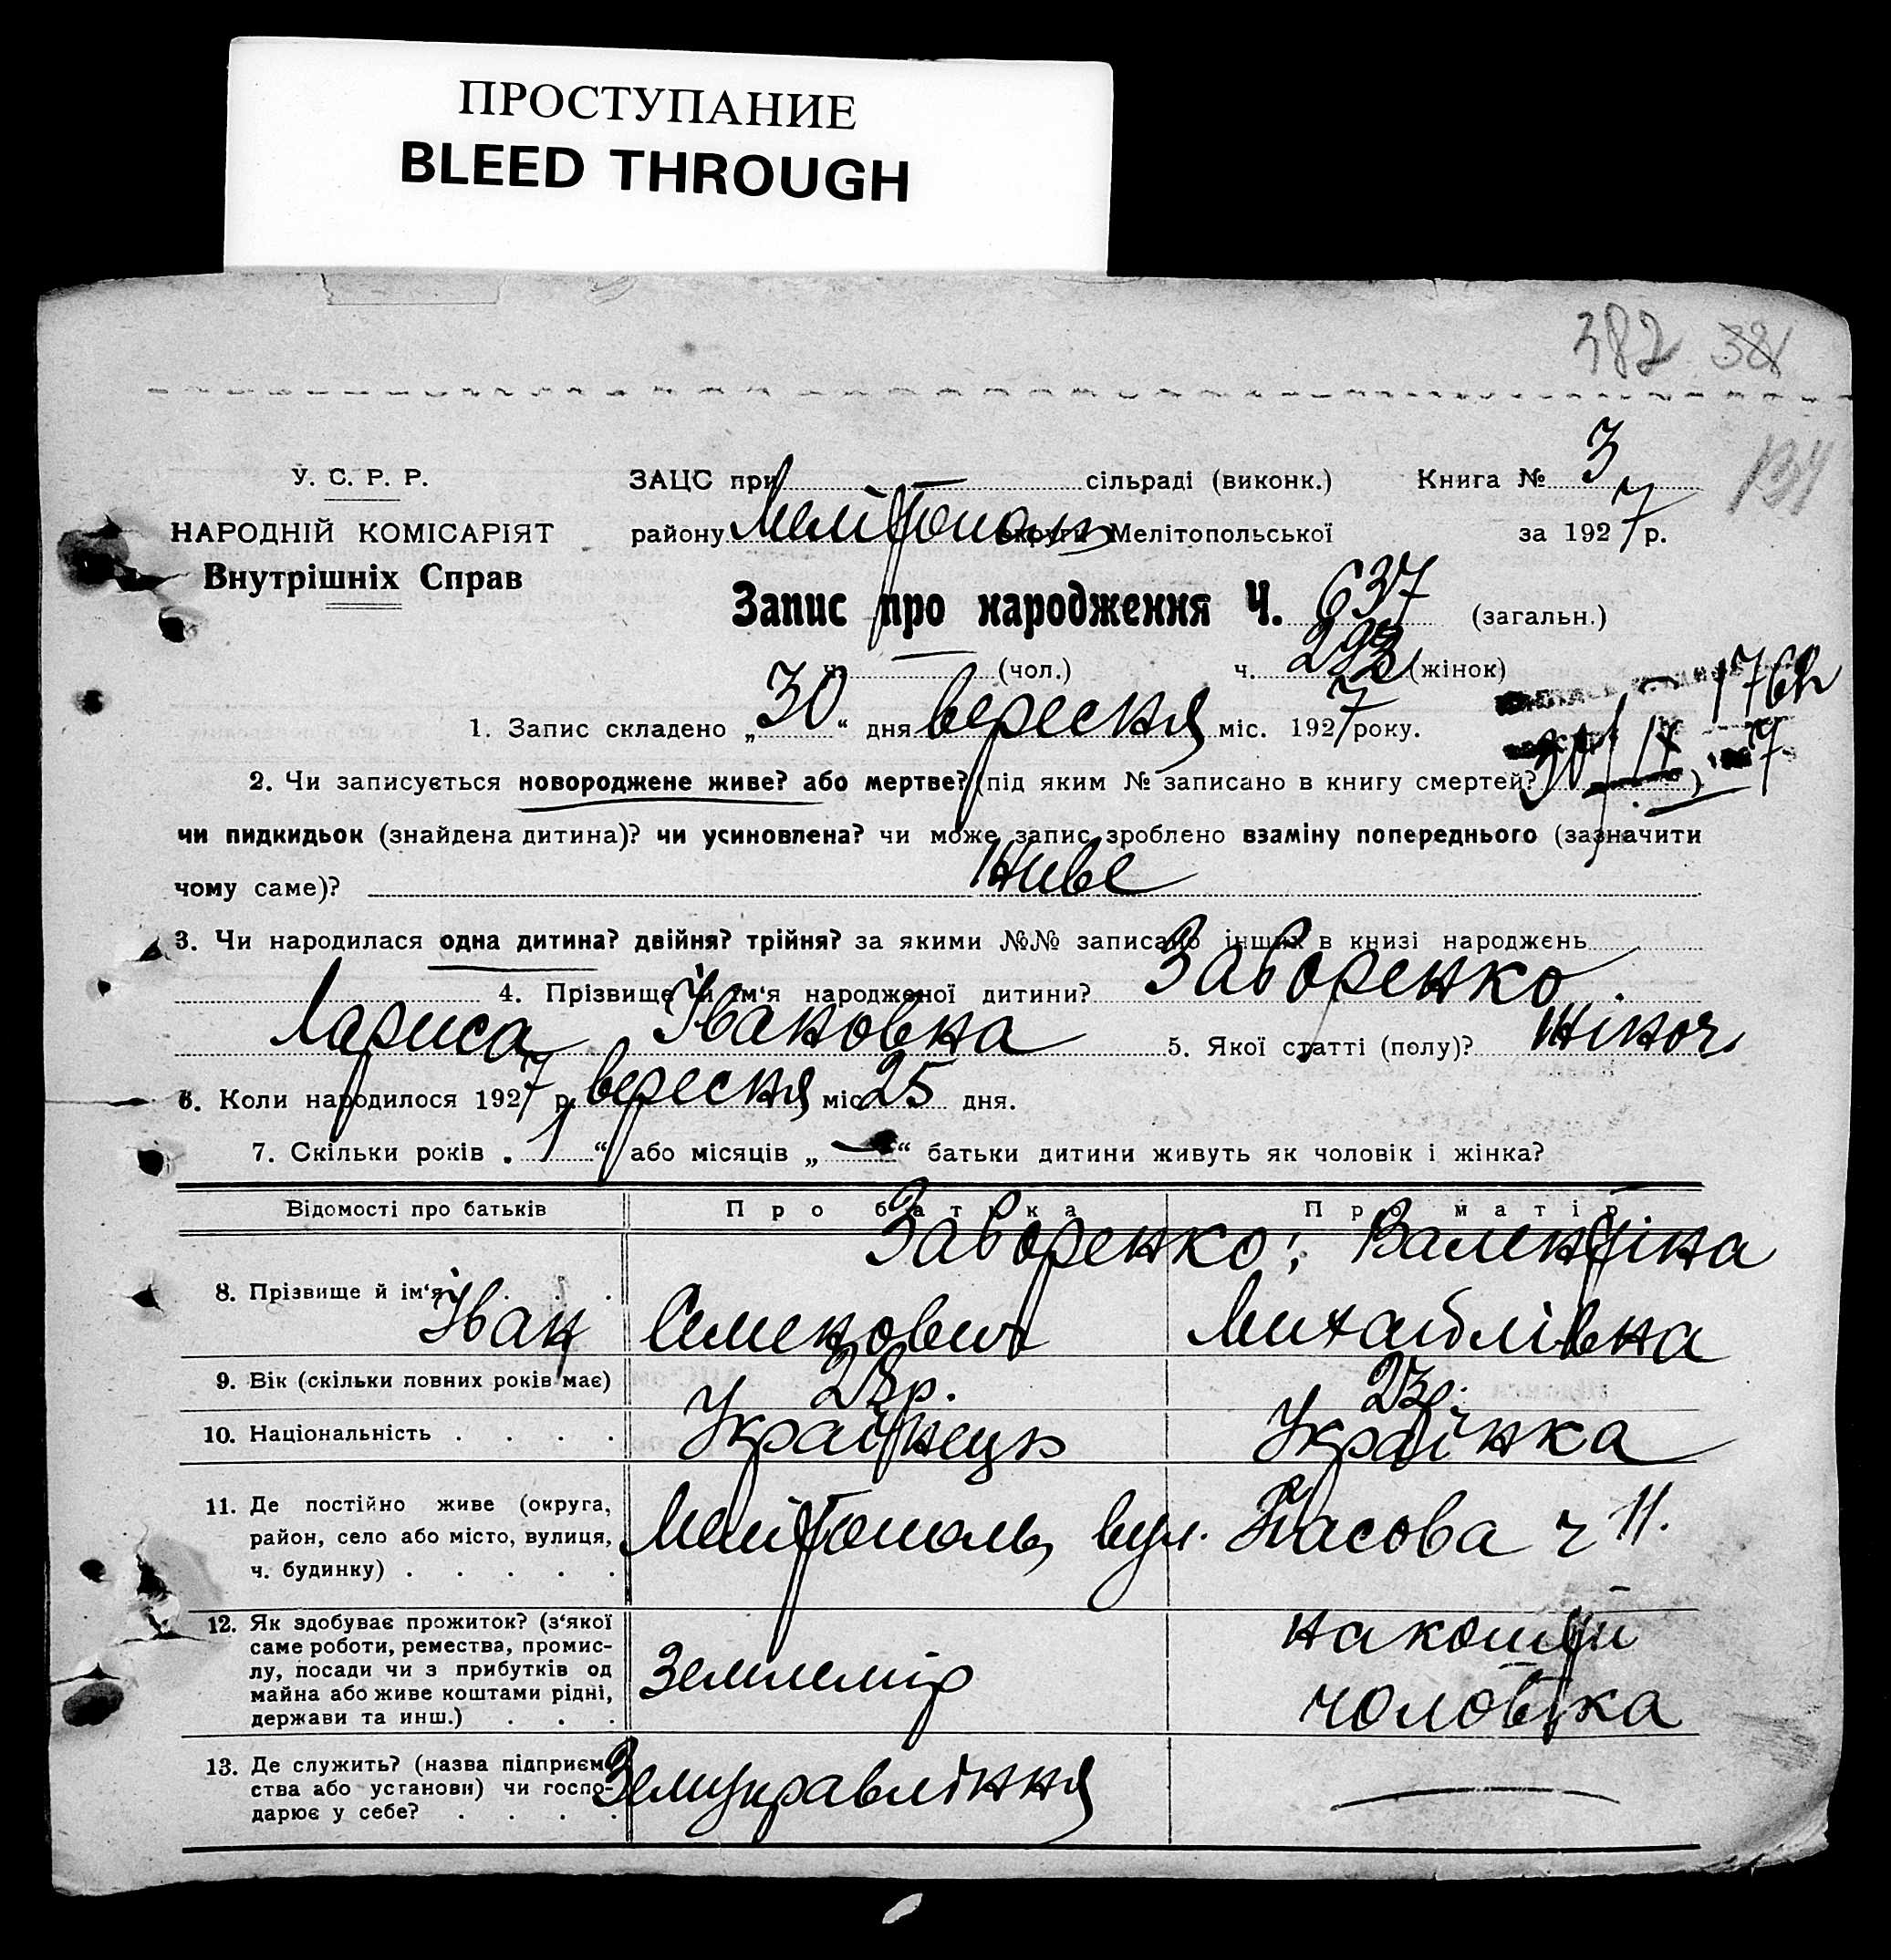 ПРОСТУПАНИЕ
BLEED THROUGH
382 381
134
У. С. Р. Р.
НАРОДНІЙ КОМІСАРІЯТ
Внутрішніх Справ
ЗАЦС при сільраді (виконк.) Книга № 3
району Мелітополь округи Мелітопольської за 1927 р.
Запис про народження Ч. 637 (загальн.)
ч. — (чол.) ч. 293 (жінок)
1. Запис складено „30“ дня вересня міс. 1927 року.
2. Чи записується новороджене живе? або мертве? (під яким № записано в книгу смертей? )
чи пидкидьок (знайдена дитина)? чи усиновлена? чи може запис зроблено взаміну попереднього (зазначити
чому саме)? живе
3. Чи народилася одна дитина? двійня? трійня? за якими №№ записано інших в книзі народжень
4. Прізвище й ім‘я народженої дитини? Заворенко
Лариса Івановна 5. Якої статті (полу)? жіноч.
6. Коли народилося 1927 р. вересня міс. 25 дня.
7. Скільки років „1“ або місяців „—“ батьки дитини живуть як чоловік і жінка?
Відомості про батьків Про батька Про матір
Заворенко; Валентіна
8. Прізвище й ім‘я Іван Семенович Михайлівна
9. Вік (скільки повних років має) 28р. 23р.
10. Національність . . . . Українець Українка
11. Де постійно живе (округа,
район, село або місто, вулиця,
ч. будинку) . . . . .
Мелітополь, вул. ч 11.
12. Як здобуває прожиток? (з‘якої
саме роботи, ремества, промис-
лу, посади чи з прибутків од
майна або живе коштами рідні,
держави та инш.) . . .
Землемір
на кошти
чоловіка
13. Де служить? (назва підприєм-
ства або установи) чи госпо-
дарює у себе? . . . .
Земуправління
—